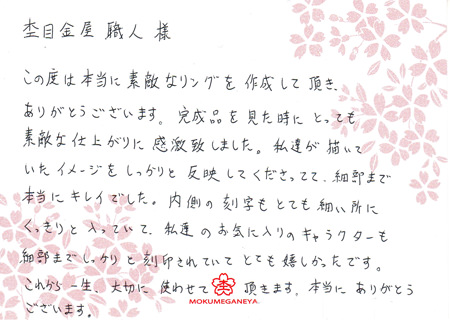 杢目金屋 職人 様
この度は本当に素敵なリングを作成して頂き、
ありがとうございます。完成品を見た時に とっても
素敵な仕上がりに感激致しました。私達が描いて
いたイメージをしっかりと反映してくださってて、細部まで
本当にキレイでした。内側の刻字もとても細い所に
くっきりと入っていて、私達のお気に入りのキャラクターも
細部までしっかりと刻印されていてとても嬉しかったです。
これから一生、大切に使わせて頂きます。本当にありがとう
ございます。
MOKUMEGANEYA